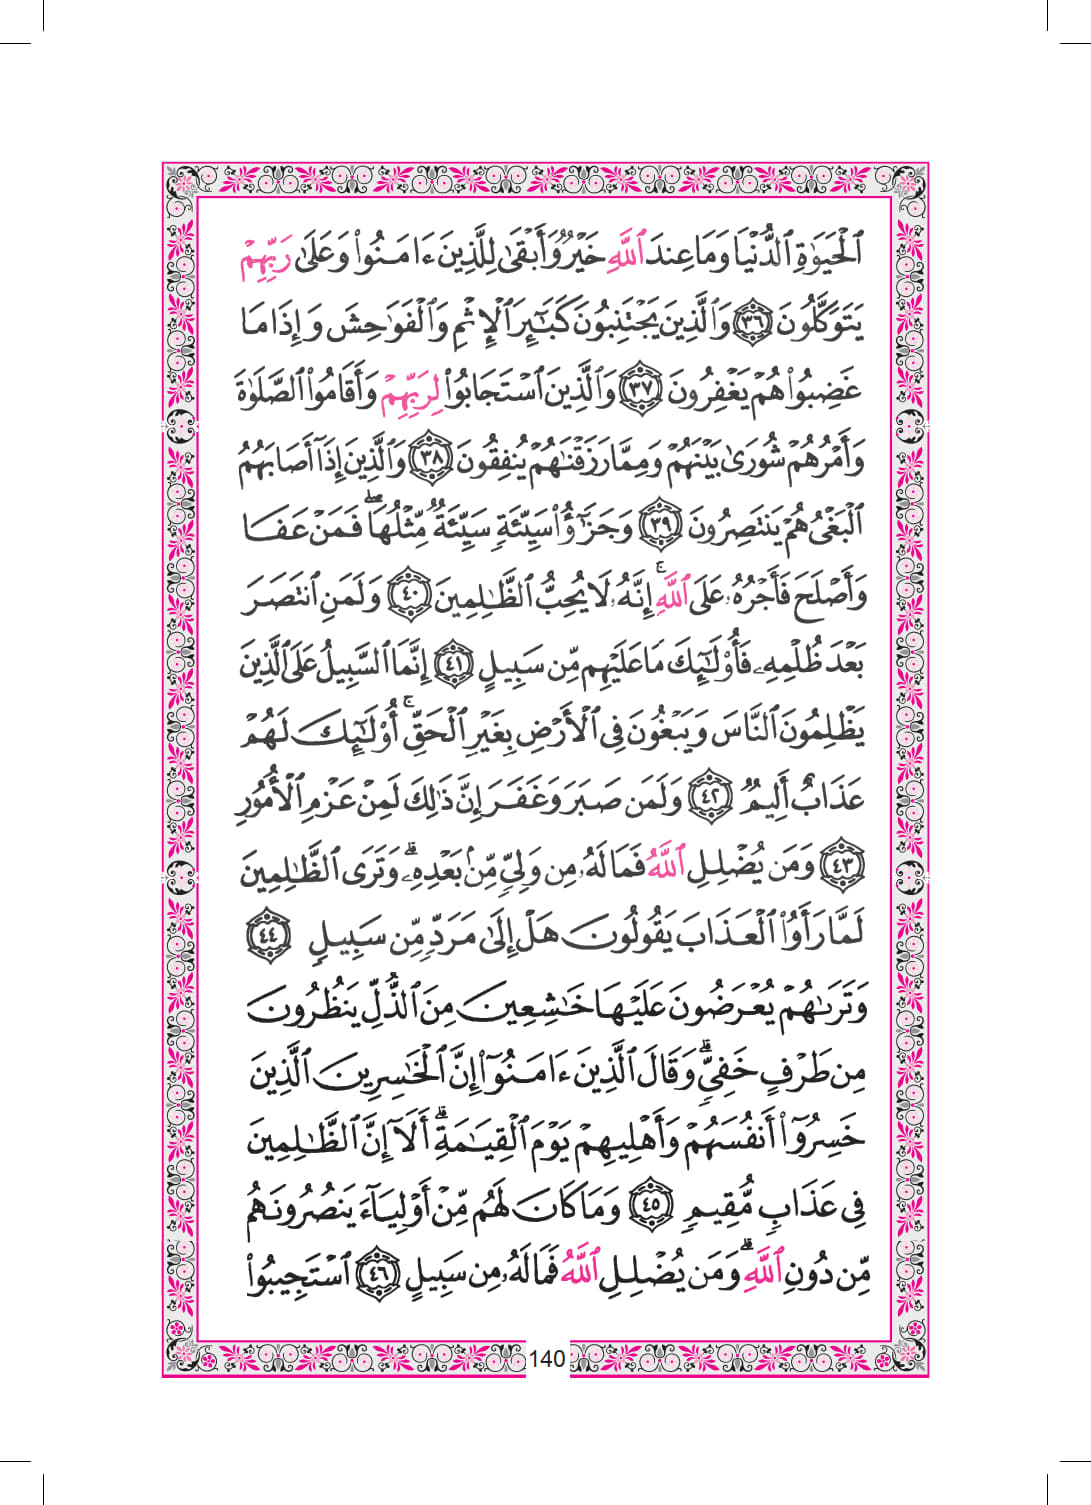 ٱلْحَيَوٰةِ ٱلدُّنْيَا وَمَا عِندَ ٱللَّهِ خَيْرٌ وَأَبْقَىٰ لِلَّذِينَ ءَامَنُوا۟ وَعَلَىٰ رَبِّهِمْ
يَتَوَكَّلُونَ ٣٦ وَٱلَّذِينَ يَجْتَنِبُونَ كَبَٰٓئِرَ ٱلْإِثْمِ وَٱلْفَوَٰحِشَ وَإِذَا مَا
غَضِبُوا۟ هُمْ يَغْفِرُونَ ٣٧ وَٱلَّذِينَ ٱسْتَجَابُوا۟ لِرَبِّهِمْ وَأَقَامُوا۟ ٱلصَّلَوٰةَ
وَأَمْرُهُمْ شُورَىٰ بَيْنَهُمْ وَمِمَّا رَزَقْنَٰهُمْ يُنفِقُونَ ٣٨ وَٱلَّذِينَ إِذَآ أَصَابَهُمُ
ٱلْبَغْىُ هُمْ يَنتَصِرُونَ ٣٩ وَجَزَٰٓؤُا۟ سَيِّئَةٍ سَيِّئَةٌ مِّثْلُهَا ۖ فَمَنْ عَفَا
وَأَصْلَحَ فَأَجْرُهُۥ عَلَى ٱللَّهِ ۚ إِنَّهُۥ لَا يُحِبُّ ٱلظَّٰلِمِينَ ٤٠ وَلَمَنِ ٱنتَصَرَ
بَعْدَ ظُلْمِهِۦ فَأُو۟لَٰٓئِكَ مَا عَلَيْهِم مِّن سَبِيلٍ ٤١ إِنَّمَا ٱلسَّبِيلُ عَلَى ٱلَّذِينَ
يَظْلِمُونَ ٱلنَّاسَ وَيَبْغُونَ فِى ٱلْأَرْضِ بِغَيْرِ ٱلْحَقِّ ۚ أُو۟لَٰٓئِكَ لَهُمْ
عَذَابٌ أَلِيمٌ ٤٢ وَلَمَن صَبَرَ وَغَفَرَ إِنَّ ذَٰلِكَ لَمِنْ عَزْمِ ٱلْأُمُورِ
٤٣ وَمَن يُضْلِلِ ٱللَّهُ فَمَا لَهُۥ مِن وَلِىٍّ مِّنۢ بَعْدِهِۦ ۗ وَتَرَى ٱلظَّٰلِمِينَ
لَمَّا رَأَوُا۟ ٱلْعَذَابَ يَقُولُونَ هَلْ إِلَىٰ مَرَدٍّ مِّن سَبِيلٍ ٤٤
وَتَرَىٰهُمْ يُعْرَضُونَ عَلَيْهَا خَٰشِعِينَ مِنَ ٱلذُّلِّ يَنظُرُونَ
مِن طَرْفٍ خَفِىٍّ ۗ وَقَالَ ٱلَّذِينَ ءَامَنُوٓا۟ إِنَّ ٱلْخَٰسِرِينَ ٱلَّذِينَ
خَسِرُوٓا۟ أَنفُسَهُمْ وَأَهْلِيهِمْ يَوْمَ ٱلْقِيَٰمَةِ ۗ أَلَآ إِنَّ ٱلظَّٰلِمِينَ
فِى عَذَابٍ مُّقِيمٍ ٤٥ وَمَا كَانَ لَهُم مِّنْ أَوْلِيَآءَ يَنصُرُونَهُم
مِّن دُونِ ٱللَّهِ ۗ وَمَن يُضْلِلِ ٱللَّهُ فَمَا لَهُۥ مِن سَبِيلٍ ٤٦ ٱسْتَجِيبُوا۟
140